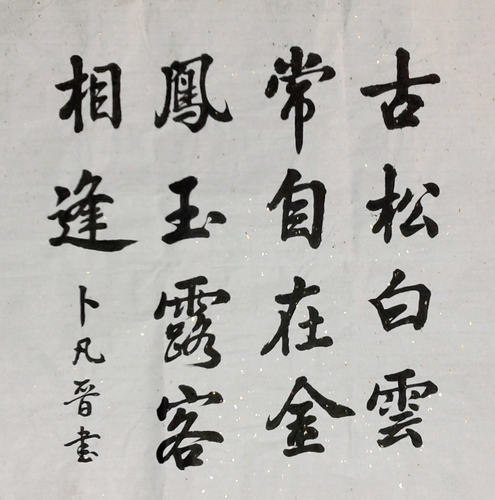 古松白雲
常自在金
鳳玉露客
相逢
卜凡晉書